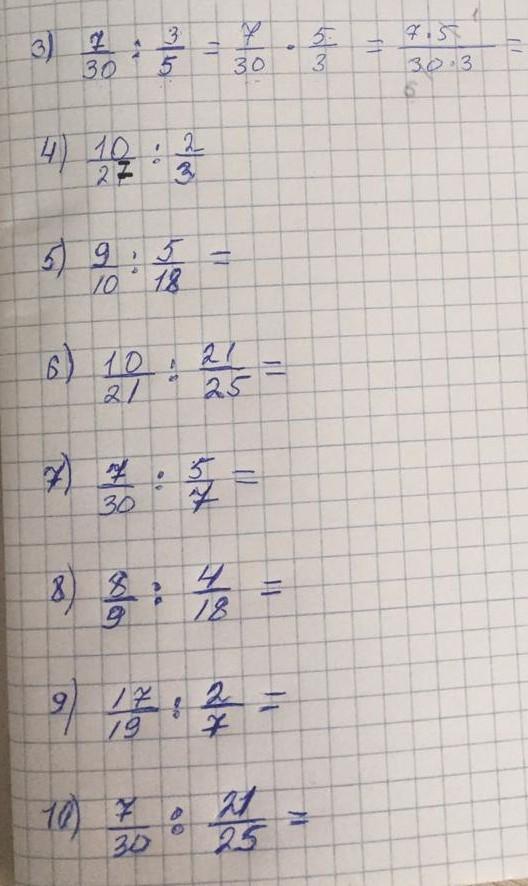 3) 7/30 : 3/5 = 7/30 · 5/3 = 7·5 1/30·3 6 =
4) 10/27 : 2/3
5) 9/10 : 5/18 =
6) 10/21 : 21/25 =
7) 7/30 : 5/7 =
8) 8/9 : 4/18 =
9) 17/19 : 2/7 =
10) 7/30 : 21/25 =